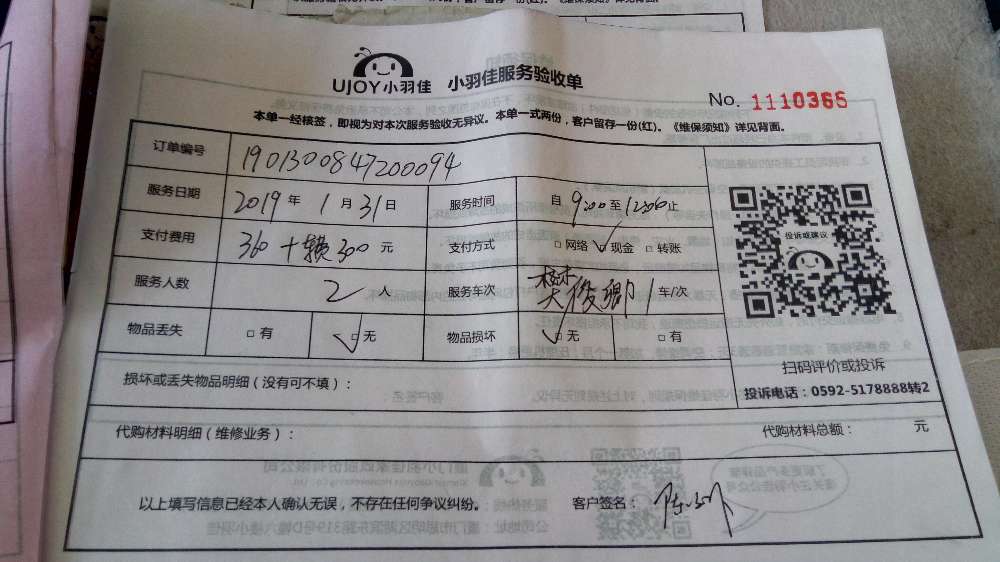 UJOY小羽佳 小羽佳服务验收单
No. 1110365
本单一经核签，即视为对本次服务验收无异议。本单一式两份，客户留存一份(红)。《维保须知》详见背面。
订单编号 1901300847200094
服务日期 2019年1月31日 服务时间 自9:00至12:00止
支付费用 360+ 300元 支付方式 □网络 ☑现金 □转账
服务人数 2人 服务车次 樊俊卿 1车/次
物品丢失 □有 ☑无 物品损坏 ☑无 □有
投诉或建议
扫码评价或投诉
投诉电话：0592-5178888转2
损坏或丢失物品明细（没有可不填）：
代购材料明细（维修业务）： 代购材料总额： 元
以上填写信息已经本人确认无误，不存在任何争议纠纷。 客户签名：